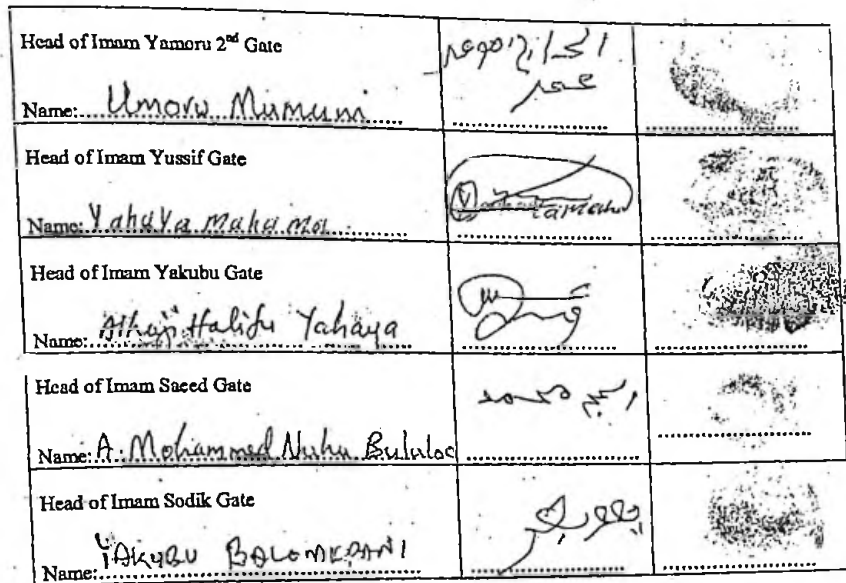 Head of Imam Yamoru 2nd Gate
Name: Umoru Mumuni
عمر
Head of Imam Yussif Gate
Name: Yahaya Mahama
Head of Imam Yakubu Gate
Name: Alhaji Halifu Yahaya
Head of Imam Saeed Gate
Name: A. Mohammed Nuhu Bululae
Head of Imam Sodik Gate
Name: YAKUBU